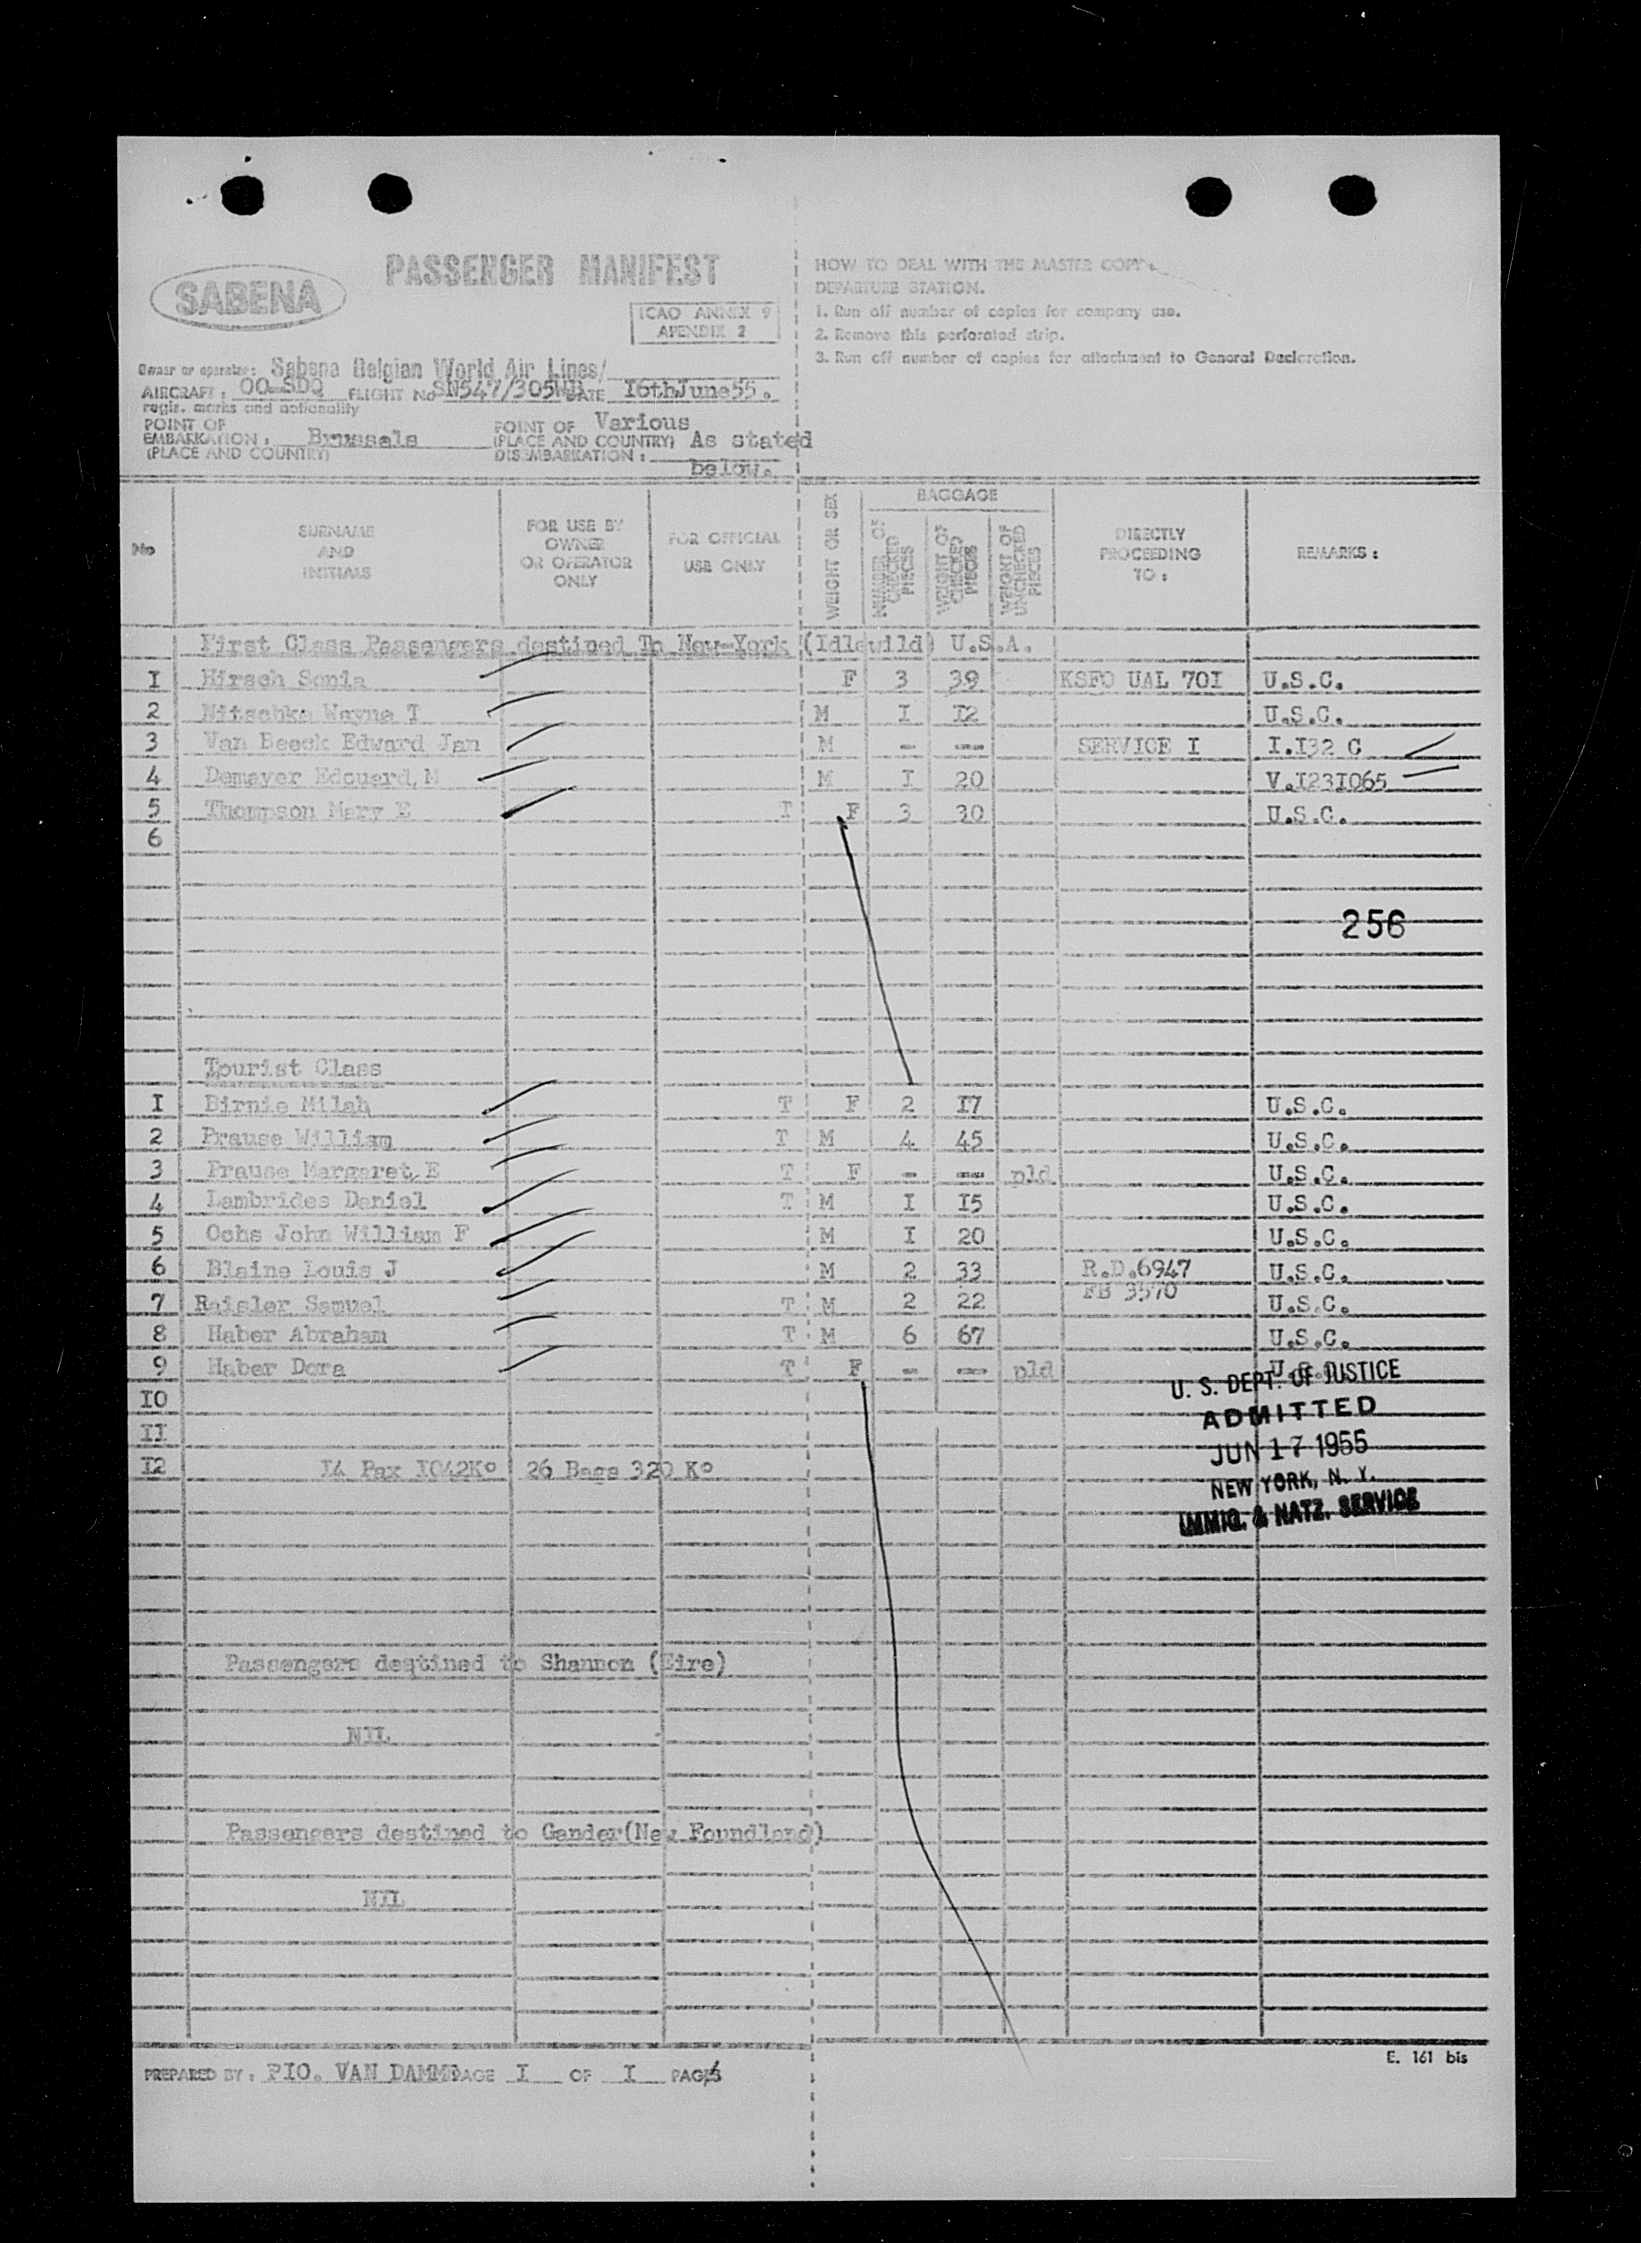 PASSENGER MANIFEST
SABENA
ICAO ANNEX 9
APENDIX 2
HOW TO DEAL WITH THE MASTER COPY
DEPARTURE STATION.
1. Run off number of copies for company use.
2. Remove this perforated strip.
3. Run off number of copies for attachment to General Declaration.
Owner or operator: Sabena Belgian World Air Lines/
AIRCRAFT: OO-SDQ FLIGHT No SN547/305 DATE I6thJune55.
regis. marks and nationality
POINT OF EMBARKATION: Brussels
(PLACE AND COUNTRY)
POINT OF Various
(PLACE AND COUNTRY) As stated
DISEMBARKATION: below.
No
SURNAME AND INITIALS
FOR USE BY OWNER OR OPERATOR ONLY
FOR OFFICIAL USE ONLY
WEIGHT OR SEX
BAGGAGE
NUMBER OF CHECKED PIECES
WEIGHT OF CHECKED PIECES
WEIGHT OF UNCHECKED PIECES
DIRECTLY PROCEEDING TO:
REMARKS:
First Class Passengers destined To New-York (Idlewild) U.S.A.
I Hirsch Sonia F 3 39 KSFO UAL 70I U.S.C.
2 Nitschke Wayne T M I I2 U.S.C.
3 Van Beeck Edward Jan M - -- SERVICE I I.I32 C
4 Demayer Edouard,M M I 20 V.I23I065
5 Thompson Mary E T F 3 30 U.S.C.
6
256
Tourist Class
I Birnie Milah T F 2 I7 U.S.C.
2 Prause William T M 4 45 U.S.C.
3 Prause Margaret,E T F - -- pld U.S.C.
4 Lambrides Daniel T M I I5 U.S.C.
5 Ochs John William F M I 20 U.S.C.
6 Blaine Louis J M 2 33 R.D.6947 U.S.C.
FB 3570
7 Raisler Samuel T M 2 22 U.S.C.
8 Haber Abraham T M 6 67 U.S.C.
9 Haber Dora T F - -- pld
U. S. DEPT. OF JUSTICE
IO
ADMITTED
II
JUN 17 1955
I2 I4 Pax I042K° 26 Bags 320 K°
NEW YORK, N. Y.
IMMIG. & NATZ. SERVICE
Passengers destined to Shannon (Eire)
NIL
Passengers destined to Gander(New Foundland)
NIL
E. 161 bis
PREPARED BY: PIO. VAN DAMME PAGE I OF I PAGES